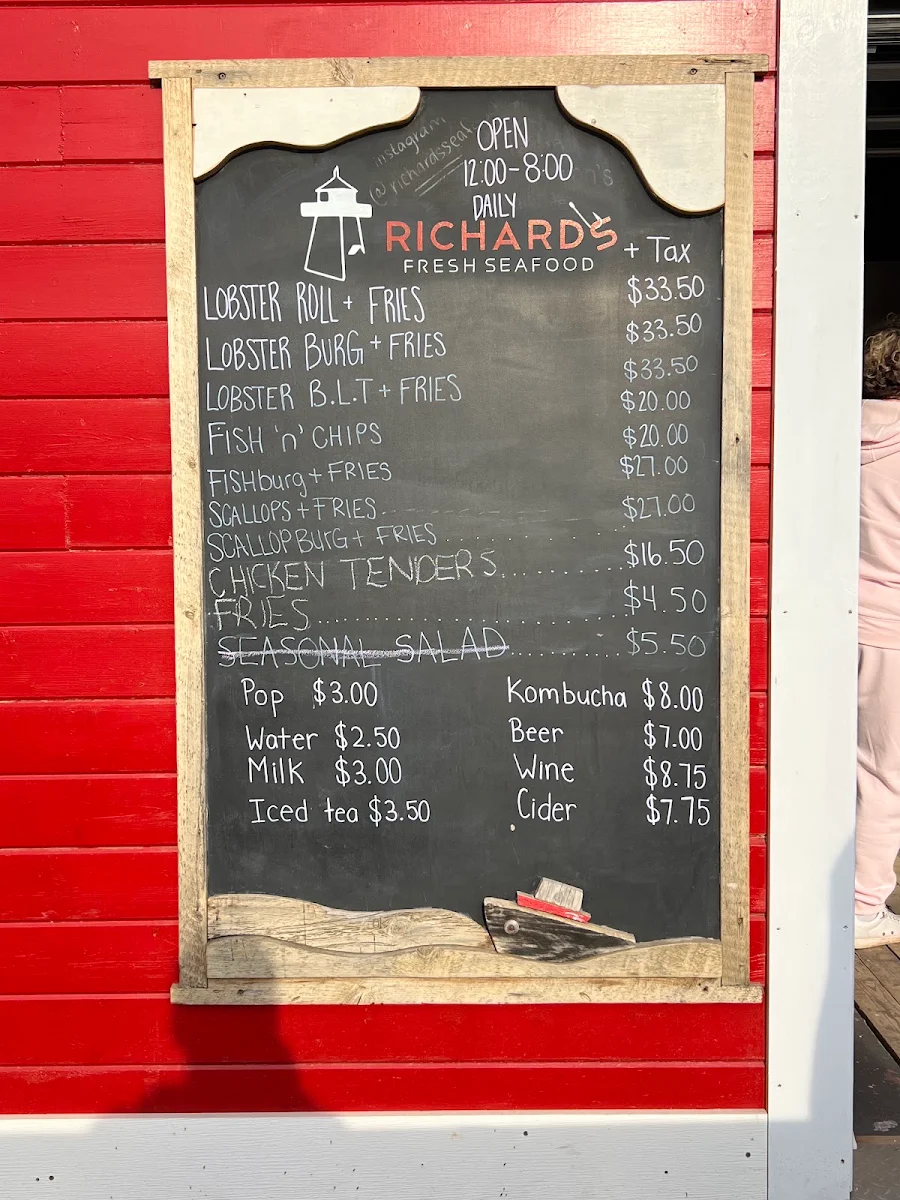 instagram
@richardsseaf
OPEN
12:00-8:00
DAILY
RICHARD'S
FRESH SEAFOOD
+ Tax
LOBSTER ROLL + FRIES $33.50
LOBSTER BURG + FRIES $33.50
LOBSTER B.L.T + FRIES $33.50
FISH 'n' CHIPS $20.00
FISHburg + FRIES $20.00
SCALLOPS + FRIES $27.00
SCALLOPBURG + FRIES $27.00
CHICKEN TENDERS $16.50
FRIES $4.50
SEASONAL SALAD $5.50
Pop $3.00 Kombucha $8.00
Water $2.50 Beer $7.00
Milk $3.00 Wine $8.75
Iced tea $3.50 Cider $7.75